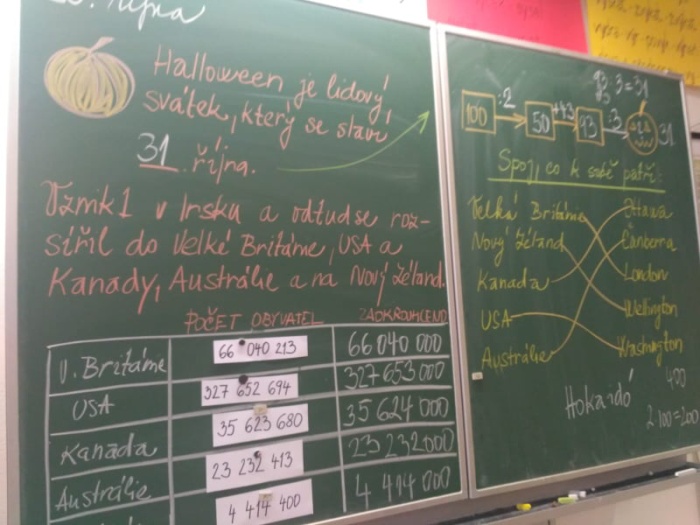 října
Halloween je lidový
svátek, který se slaví
31. října.
Vznikl v Irsku a odtud se roz-
šířil do Velké Británie, USA a
Kanady, Austrálie a na Nový Zéland.
POČET OBYVATEL ZAOKROUHLENO
V. Británie 66 040 213 66 040 000
USA 327 652 694 327 653 000
Kanada 35 623 680 35 624 000
Austrálie 23 232 413 23 232 000
4 414 400 4 414 000
93:3=31
100 :2 50 +43 93 :3 31
Spoj, co k sobě patří:
Velká Británie Ottawa
Nový Zéland Canberra
Kanada London
USA Wellington
Austrálie Washington
Hokaidó 400
2·100=200